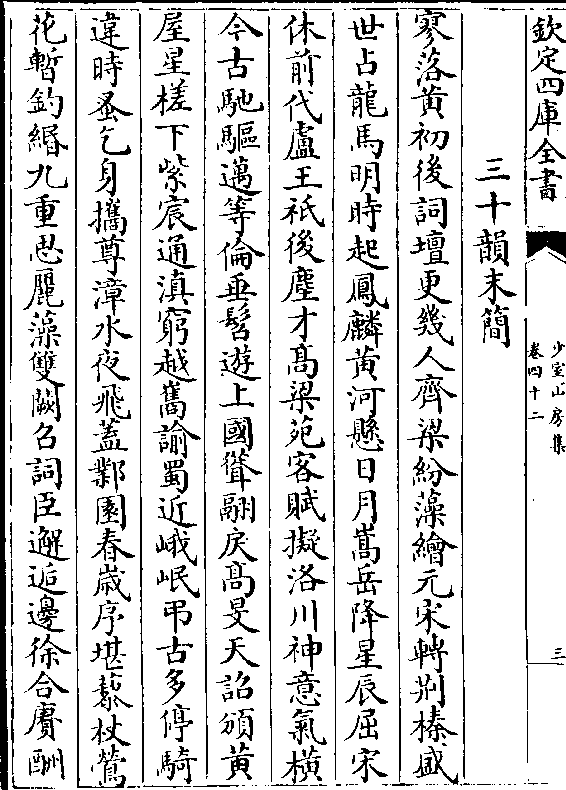 欽定四庫全書
少室山房集
卷四十二
三
三十韻末簡
寥落黄初後詞壇更幾人齊梁紛藻繪元宋轉荆榛盛
世占龍馬明時起鳳麟黄河懸日月嵩岳降星辰屈宋
休前代盧王祗後塵才髙梁苑客賦擬洛川神意氣橫
今古馳驅邁等倫垂髫遊上國聳翮戾髙旻天詔頒黄
屋星槎下紫宸通滇窮越嶲諭蜀近峨岷弔古多停騎
違時蚤乞身攜尊漳水夜飛蓋鄴園春歲序堪藜杖鶯
花暫釣緡九重思麗藻雙闕召詞臣邂逅邊徐合賡酬